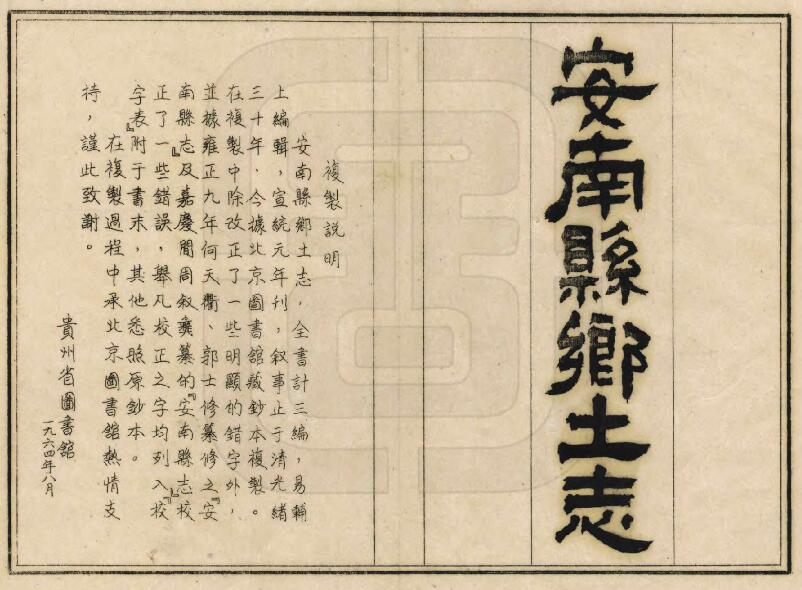 安南縣鄉土志
複製説明
安南縣鄉土志，全書計三編，易輔
上編輯，宣統元年刊，叙事止于清光緒
三十年，今據北京圖書舘藏鈔本複製。
在複製中除改正了一些明顯的錯字外，
並據雍正九年何天衢、郭士修纂修之『安
南縣志』及嘉慶間周叙彝纂的『安南縣志』校
正了一些錯誤，舉凡校正之字均列入『校
字表』附于書末，其他悉照原鈔本。
在複製過程中承北京圖書舘熱情支
持，謹此致謝。
貴州省圖書舘
一九六四年八月